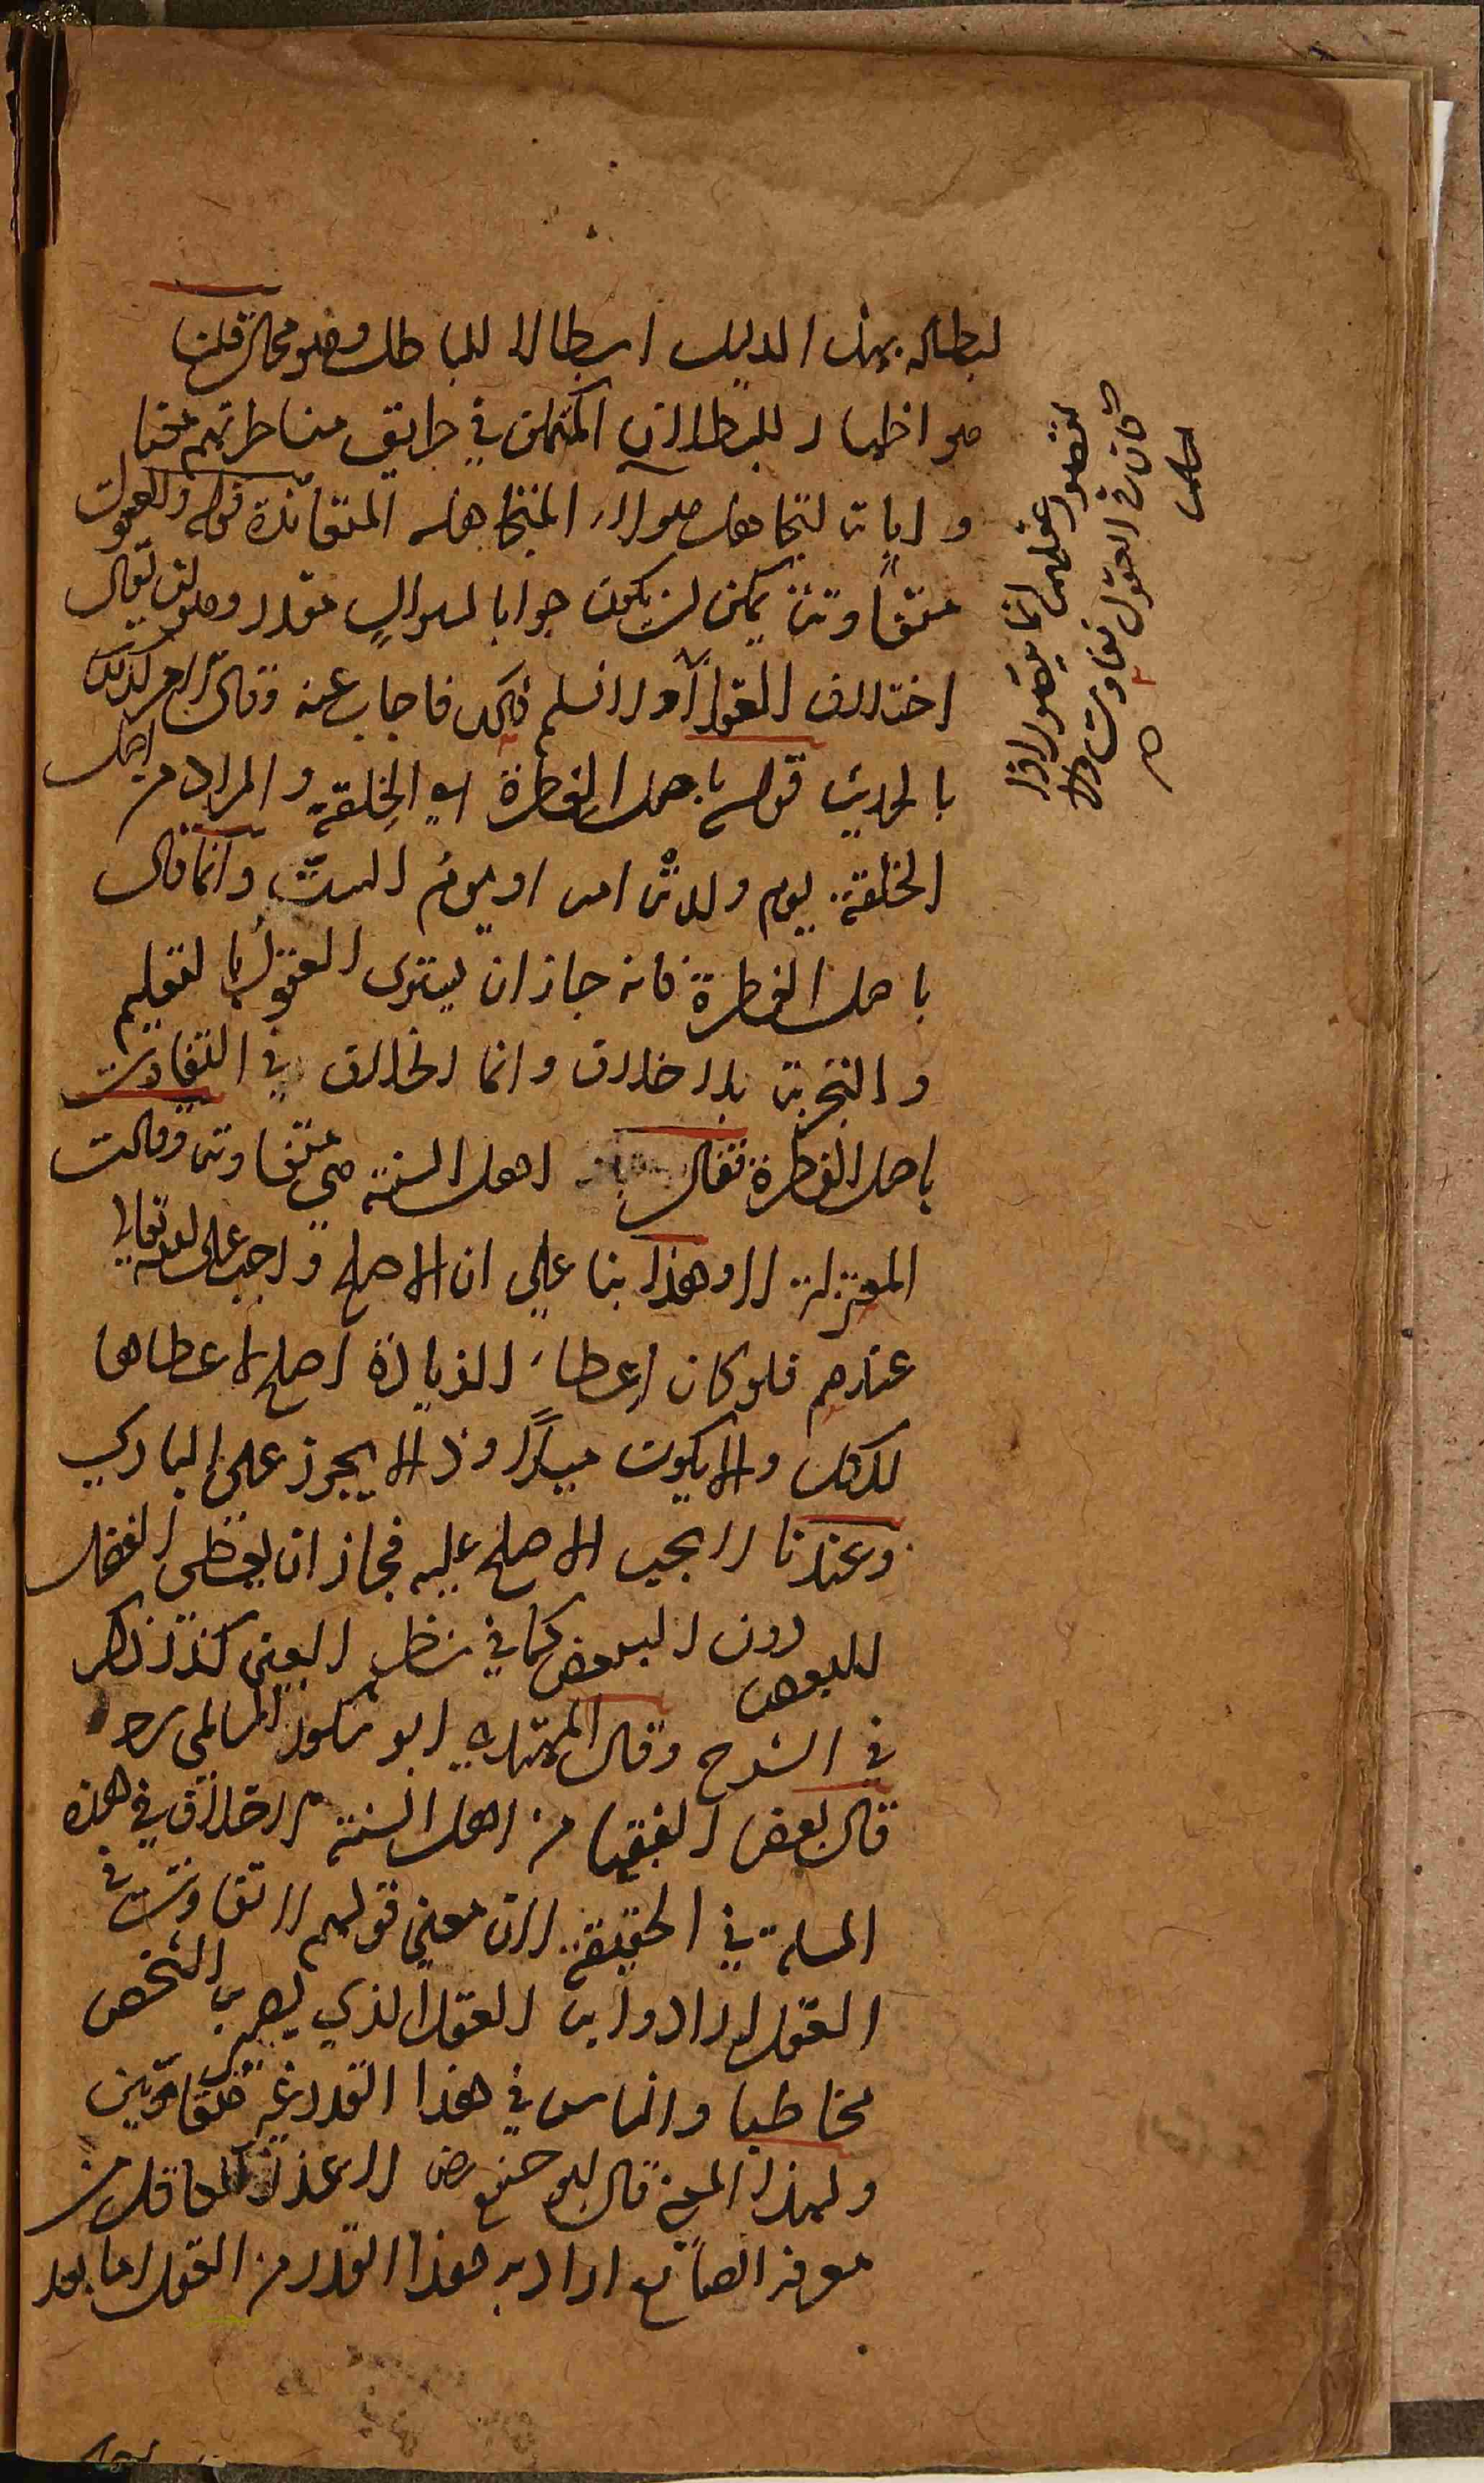 ابطاله بهذا الدليل ابطالا للباطل وهو محال قلنا
هو اظهار للبطلان المتمكن في طرايق مناظرتهم
واثبات لتجاهل هولاء المتجاهله المتعاندة قوله والعقول
متفاوتة يمكن ان يكون جوابا لسوال مقدر وهو ان يقال
اختلاف العقول لا نسلم ذلك فاجاب عنه وقال
قوله باصل الفطرة اي الخلقة والمراد من اصل
الخلقة يوم ولدته امه او يوم الست وانما قال
باصل الفطرة فانه جاز ان يستوى العقول بالتعليم
والتجربة بلا خلاف وانما الخلاف في التفاوت
باصل الفطرة فقال اهل السنة هي متفاوتة وقالت
المعتزلة لا وهذا بنا علي ان الاصلح واجب على الله تعالى
عندهم فلو كان اعطاء الزيادة اصلح لاعطاها
للكل والا يكون ميلا وذا لا يجوز على الباري
وعندنا لا يجب الاصلح عليه فجاز ان يعطى الفضل
للبعض دون البعض كما في نظر العين كذا ذكر
في الشرح وقال المهتدي ابو شكور السالمي رحـ
قال بعض الفقها من اهل السنة لا خلاف في هذه
المسلة في الحقيقة لان معنى قولهم لا تفاوت في
العقل ارادوا به العقل الذي يصير به الشخص
مخاطبا والناس في هذا القدر غير متفاوتين
ولهذا المعنى قال ابو حنيفه رض لا عذر لعاقل من
معرفة الصانع اراد به هذا القدر من العقل اما بعد
عقلهن انما يتصور اذا
كان في العقول تفاوت والا